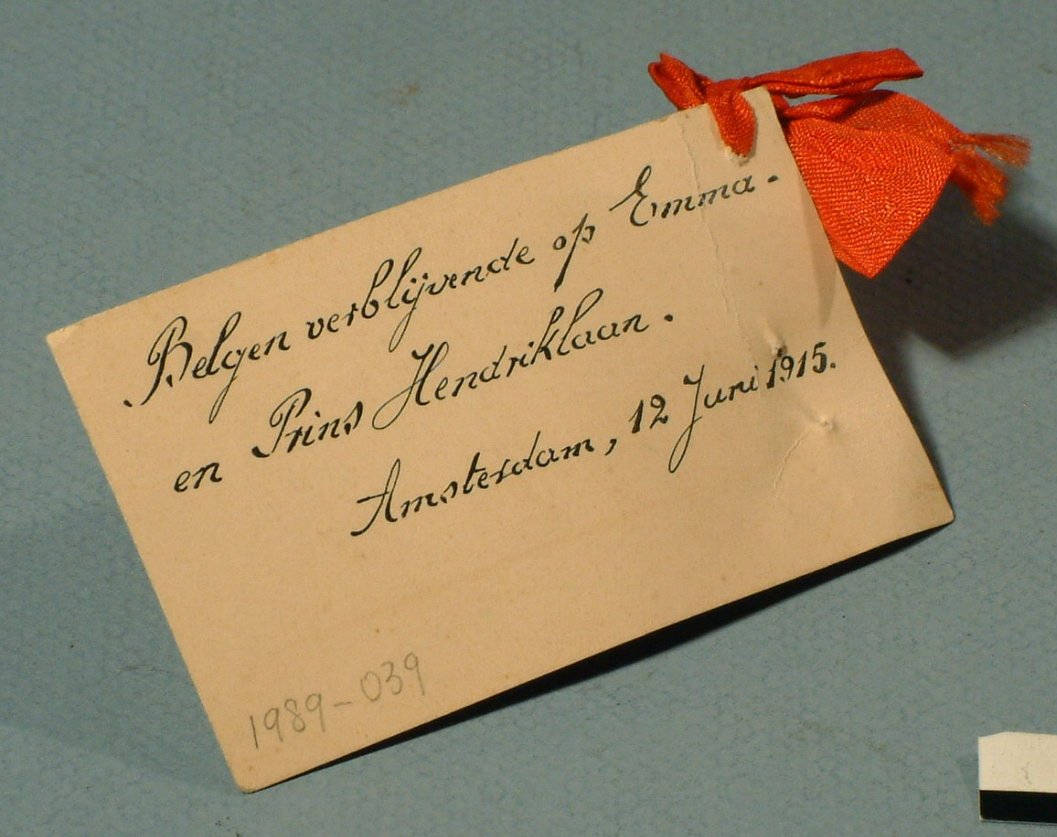 Belgen verblijvende op Emma-
en Prins Hendriklaan.
Amsterdam, 12 Juni 1915.
1989-039